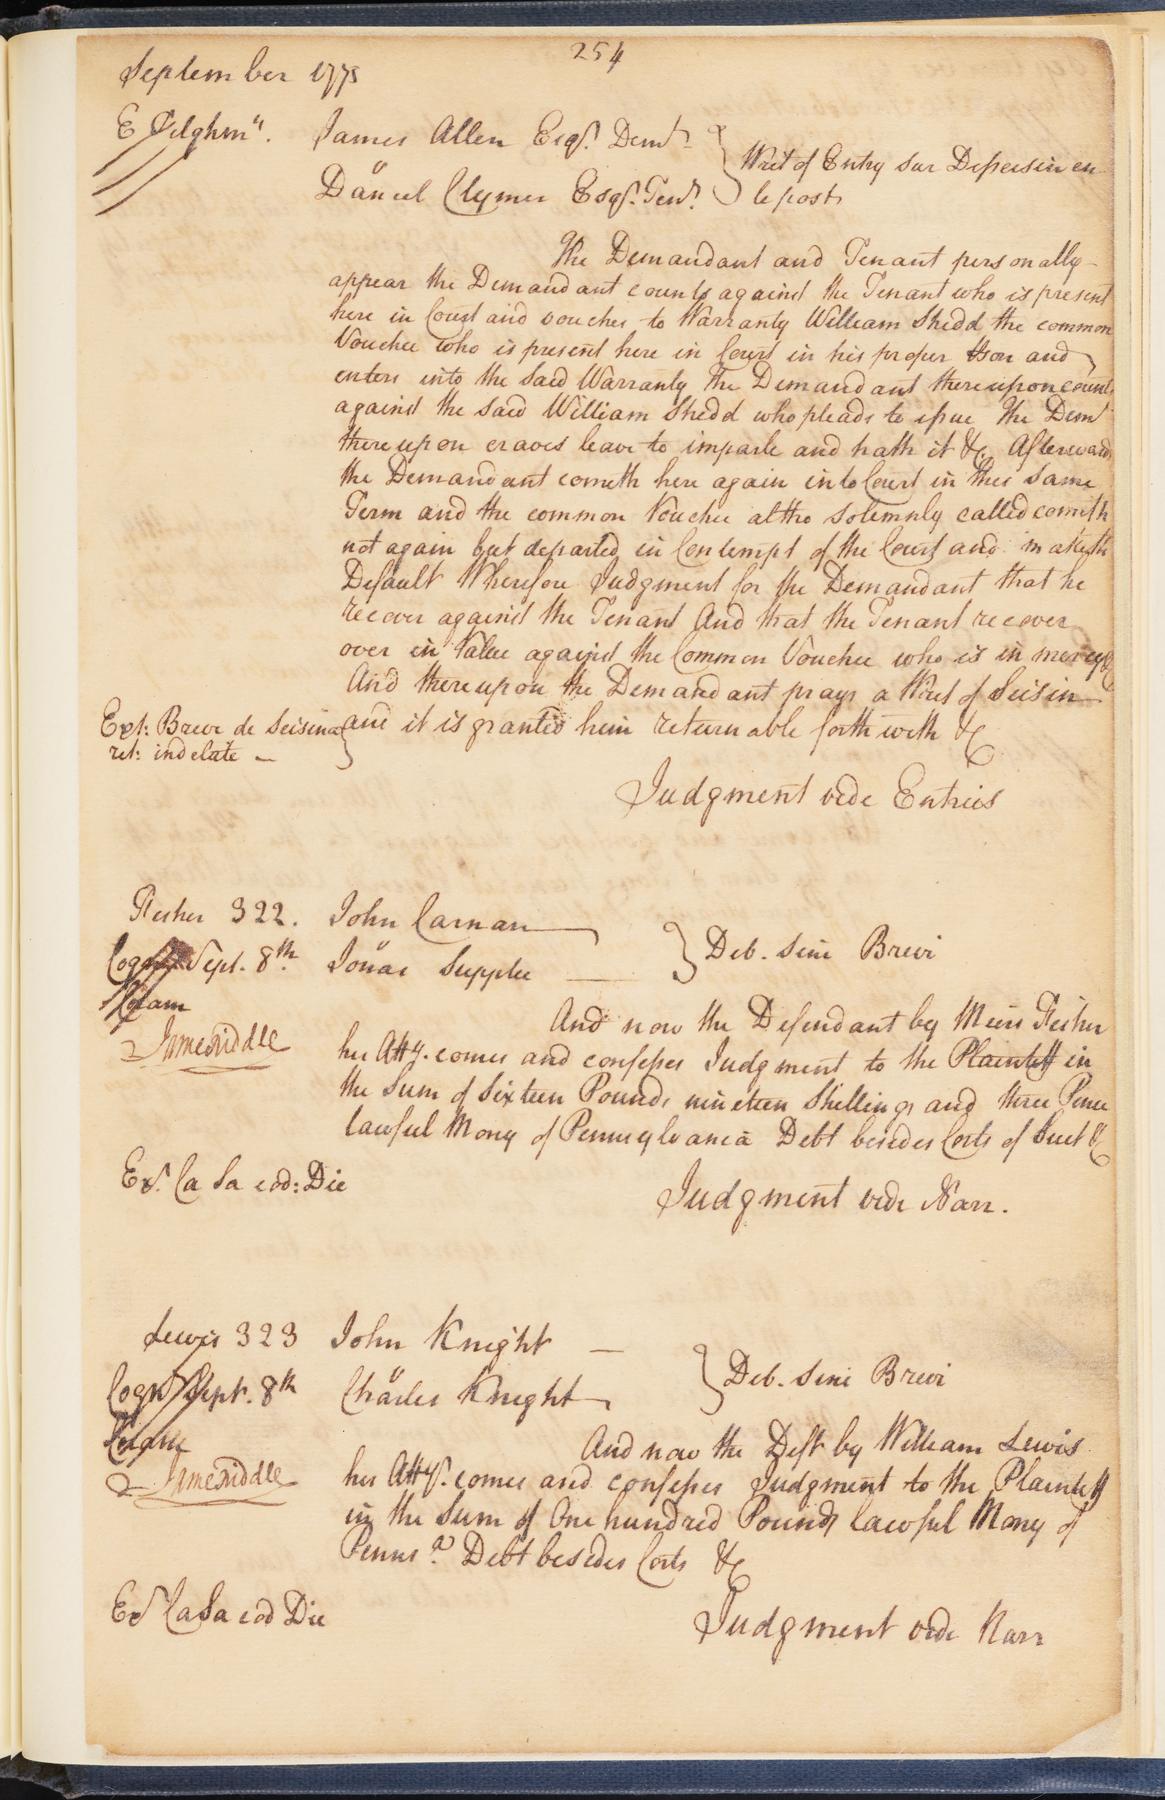 254
September 1775
E Tilghmn.
James Allen Esqr. Demt.
Daniel Clymer Esqr. Tent.
Writ of Entry sur Disseisin en
le post
The Demandant and Tenant personally
appear the Demandant counts against the Tenant who is present
here in Court and vouches to Warranty William Shedd the common
Vouchee who is present here in Court in his proper and
enters into the said Warranty The Demandant thereupon counts
against the said William Shedd who pleads to issue The Demt
thereupon craves leave to imparle and hath it &c. Afterwards
the Demandant cometh here again into Court in this same
Term and the common Vouchee altho solemnly called cometh
not again but departed in Contempt of the Court and maketh
Default Wherefore Judgment for the Demandant that he
recover against the Tenant And that the Tenant recover
over in Value against the Common Vouchee who is in mercy &c
And thereupon the Demandant prays a Writ of Seisin
and it is granted him returnable forthwith &c
Ext: Breve de Seisina
ret: indelate
Judgment vide Entries
Fisher 322. John Carnan
Sept. 8th. Jonas Supplee
Deb. sine Brevi
And now the Defendant by Miers Fisher
his Atty. comes and confesses Judgment to the Plaintiff in
the Sum of Sixteen Pounds nineteen Shillings and three Pence
lawful Mony of Pennsylvania Debt besides Costs of Suit &c
Ex. Ca Sa eod: Die
Judgment vide Narr.
Lewis 323 John Knight
Sept. 8th Charles Knight
Deb. sine Brevi
And now the Deft by William Lewis
his Atty. comes and confesses Judgment to the Plaintiff
in the Sum of One hundred Pounds lawful Mony of
Pennsa. Debt besides Costs &c
Ex CaSa eod Die
Judgment vide Narr